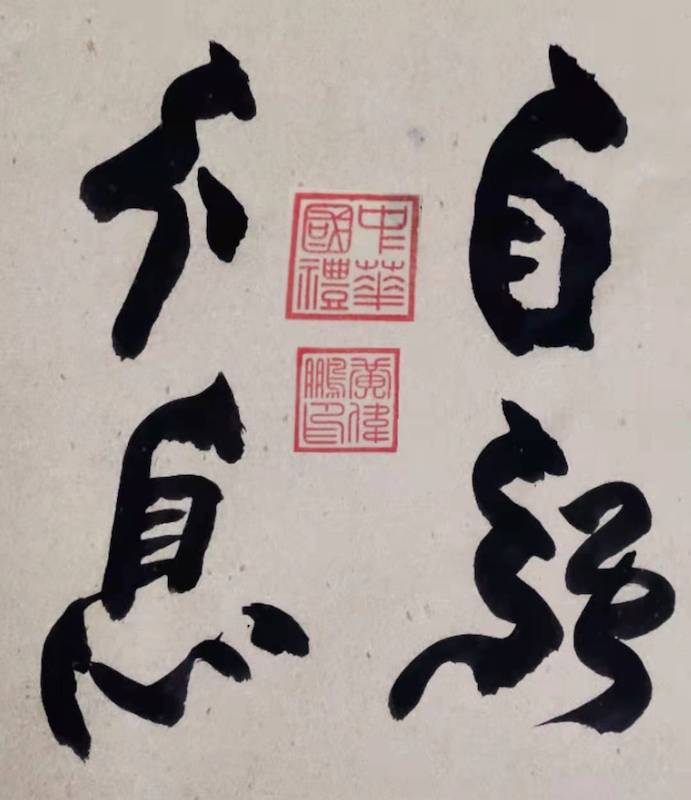 自强
不息
中華
國禮
黄偉
鵬印